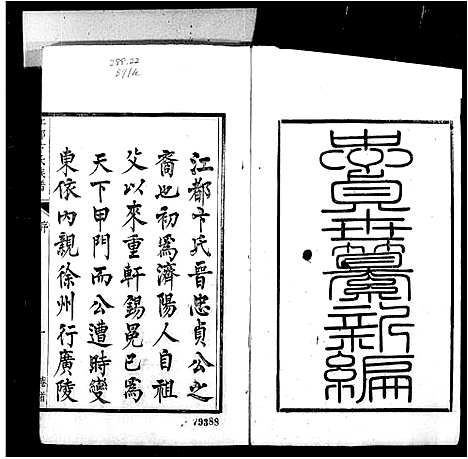 忠貞世纂新編
288.22
江都卞氏晉忠貞公之
裔也初爲濟陽人自祖
父以來重軒錫冕已爲
天下甲門而公遭時變
東依内親徐州行廣陵
江都卞氏族譜
序
一
79388